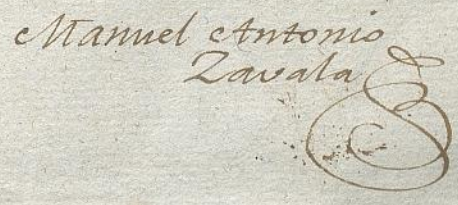 Manuel Antonio
Zavala